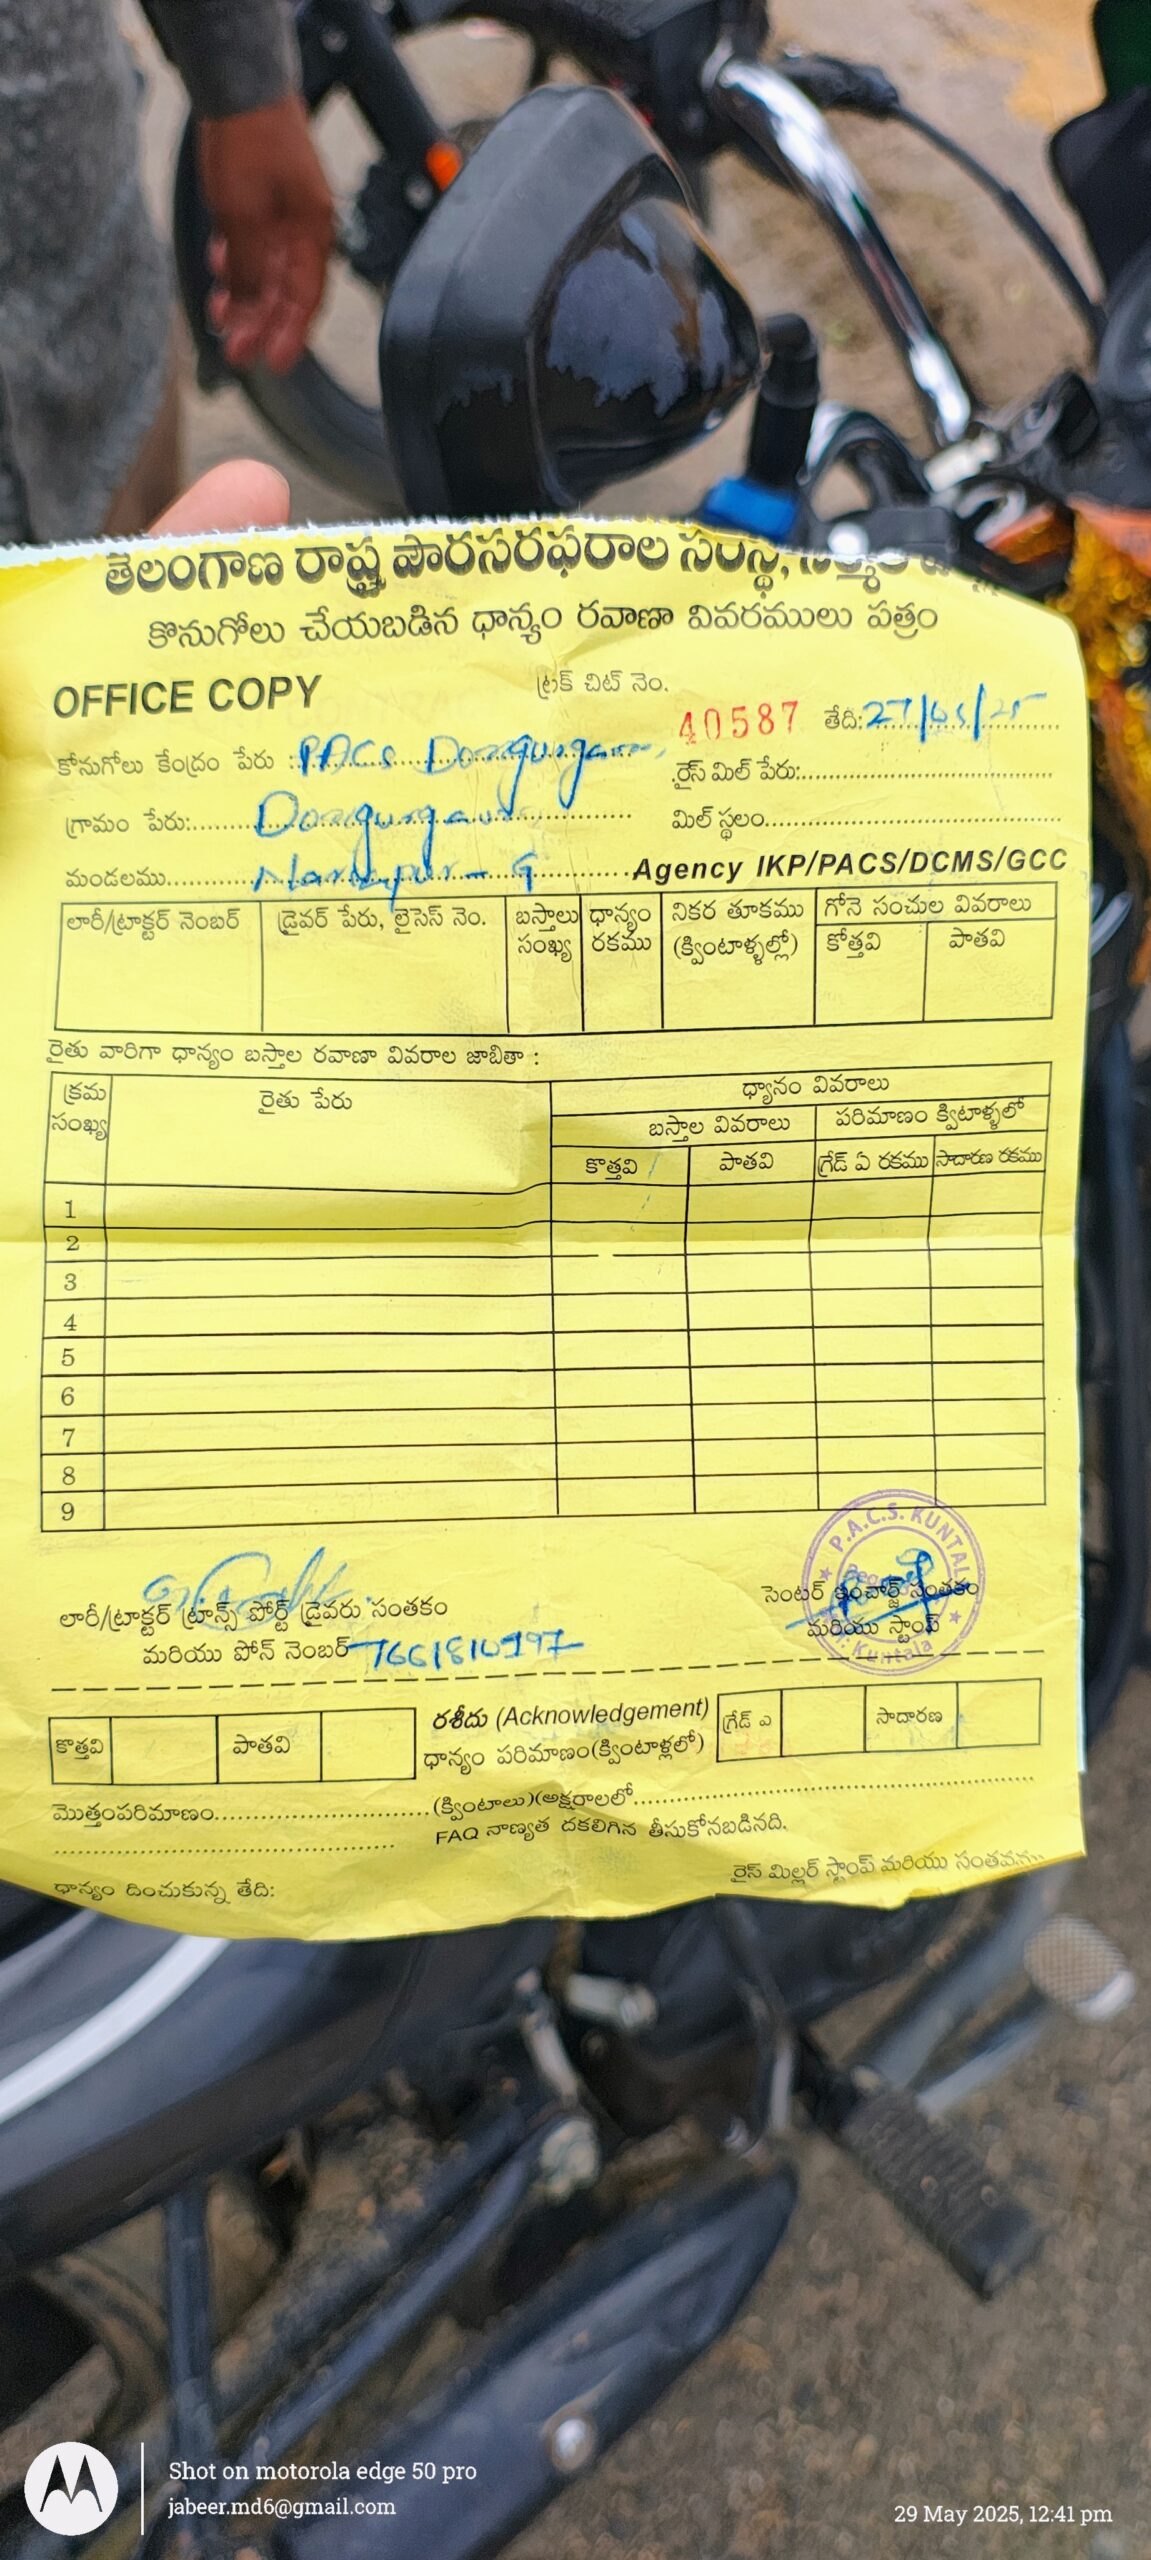 తెలంగాణ రాష్ట్ర పౌరసరఫరాల సంస్థ,
కొనుగోలు చేయబడిన ధాన్యం రవాణా వివరములు పత్రం
OFFICE COPY
ట్రక్ చిట్ నెం.
40587 తేది: 27/05/25
కోనుగోలు కేంద్రం పేరు : PACS Doragurgam
రైస్ మిల్ పేరు:
గ్రామం పేరు:
మిల్ స్థలం
మండలము Narsapur - G
Agency IKP/PACS/DCMS/GCC
లారీ/ట్రాక్టర్ నెంబర్ డ్రైవర్ పేరు, లైసెస్ నెం. బస్తాలు సంఖ్య ధాన్యం రకము నికర తూకము (క్వింటాళ్ళల్లో) గోనె సంచుల వివరాలు
కోత్తవి పాతవి
రైతు వారిగా ధాన్యం బస్తాల రవాణా వివరాల జాబితా :
క్రమ సంఖ్య రైతు పేరు ధ్యానం వివరాలు
బస్తాల వివరాలు పరిమాణం క్విటాళ్ళలో
కొత్తవి పాతవి గ్రేడ్ ఏ రకము సాదారణ రకము
1
2
3
4
5
6
7
8
9
P.A.C.S. KUNTALA
లారీ/ట్రాక్టర్ ట్రాన్స్ పోర్ట్ డ్రైవరు సంతకం
సెంటర్ ఇంచార్జ్ సంతకం
మరియు పోన్ నెంబర్ 7661810197
మరియు స్టాంప్
Kuntala
కొత్తవి పాతవి
రశీదు (Acknowledgement)
ధాన్యం పరిమాణం(క్వింటాళ్లలో)
గ్రేడ్ ఎ సాదారణ
మొత్తంపరిమాణం (క్వింటాలు)(అక్షరాలలో
FAQ నాణ్యత దకలిగిన తీసుకోనబడినది.
ధాన్యం దించుకున్న తేది:
రైస్ మిల్లర్ స్టాంప్ మరియు
Shot on motorola edge 50 pro
jabeer.md6@gmail.com
29 May 2025, 12:41 pm